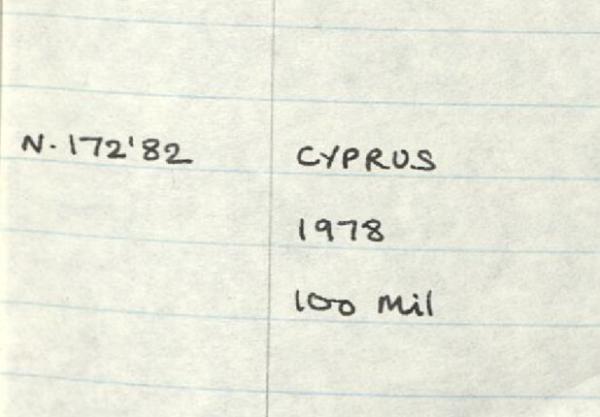 N. 172'82
CYPRUS
1978
100 Mil